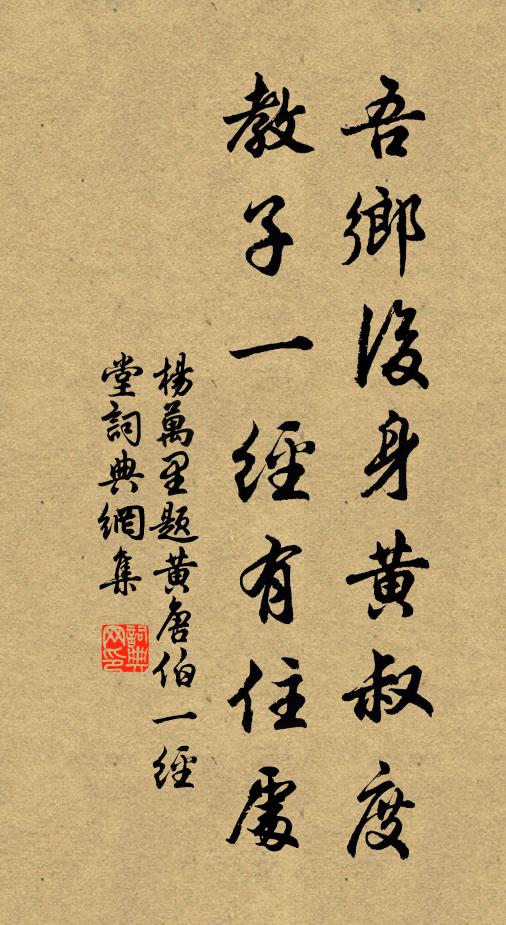 吾鄉後身黃叔度
教子一經有住處
楊萬里題黃唐伯一經
堂詞典網集
詞典网印